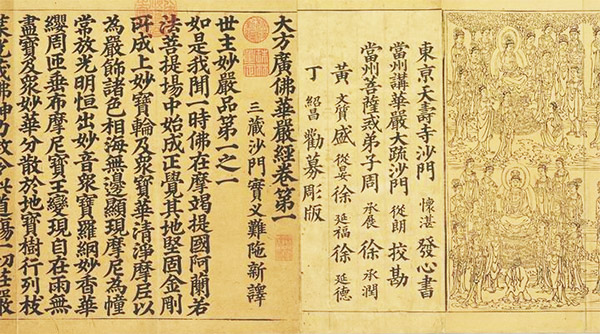 東京天壽寺沙門 懷湛 發心書
當州講華嚴大疏沙門 從朗 挍勘
當州菩薩戒弟子周 承展 徐 承潤
黃 文質 盛 從晏 徐 延福 徐 延德
丁 紹昌 勸募彫版
大方廣佛華嚴經卷第一
三藏沙門實叉難陁新譯
世主妙嚴品第一之一
如是我聞一時佛在摩竭提國阿蘭若
法菩提場中始成正覺其地堅固金剛
所成上妙寶輪及眾寶華清淨摩尼以
為嚴飾諸色相海無邊顯現摩尼為幢
常放光明恒出妙音眾寶羅網妙香華
纓周匝垂布摩尼寶王變現自在雨無
盡寶及眾妙華分散於地寶樹行列枝
葉光茂佛神力故令此道場一切莊嚴